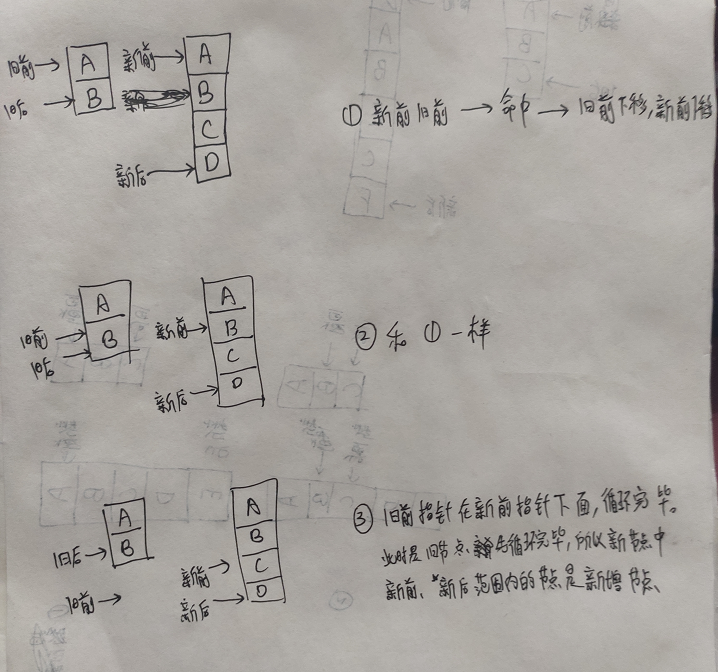 旧前 A 新前 A
旧后 B B
C
新后 D
① 新前旧前 → 命中 → 旧前下移,新前下移
A A
旧前 B 新前 B
旧后 C
新后 D
② 和 ① 一样
A A
旧后 B B
新前 C
旧前 新后 D
③ 旧前指针在新前指针下面,循环完毕。
此时是旧节点先循环完毕,所以新节点中
新前、新后范围内的节点是新增节点、